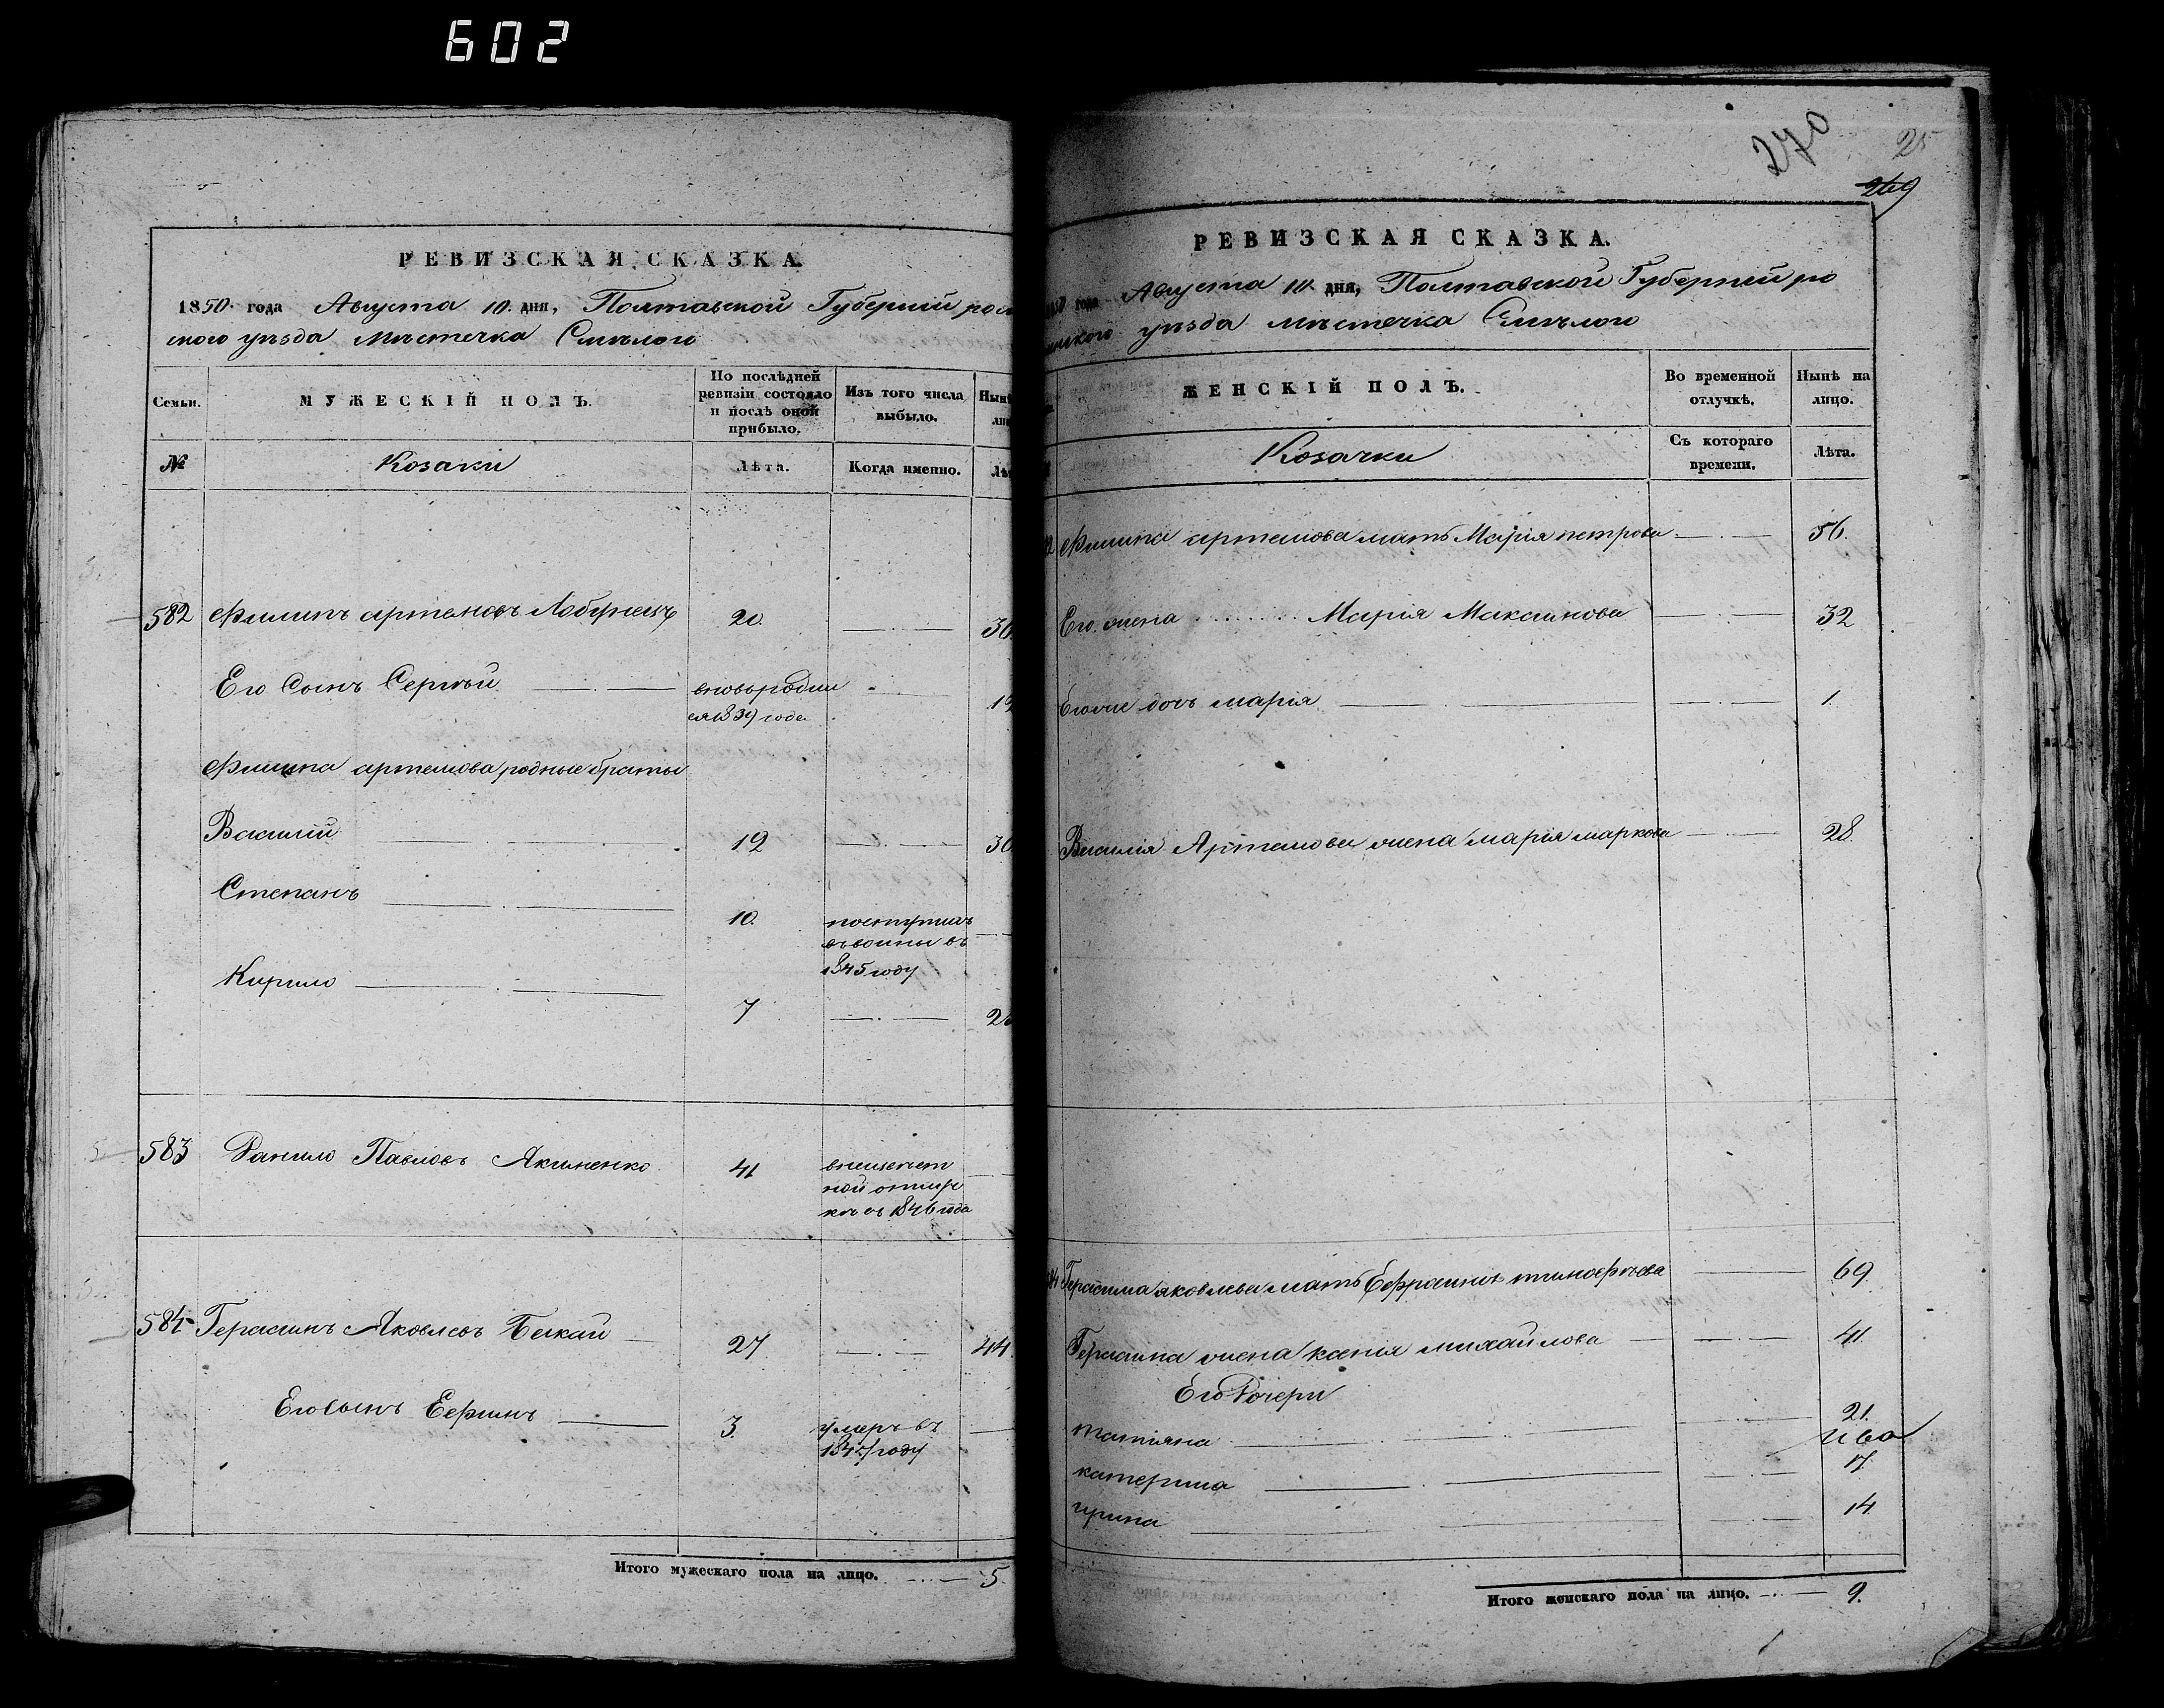 602
РЕВИЗСКАЯ СКАЗКА.
1850 года Августа 10 дня, Полтавской Губерніи ром
ского уѣзда мѣстечка Смѣлого
Семьи.
МУЖЕСКІЙ ПОЛЪ.
По послѣдней ревизіи состояло и послѣ оной прибыло.
Изъ того числа выбыло.
№
Козаки
Лѣта.
Когда именно.
582 Филипъ артемовъ 20. 36
Его Сынъ Сергѣй вновьродил
ся 1839 года
Филипа артемова родные братья
Василій 12 30
Степанъ 10. поступилъ
въ воины въ
1845 году
Кирило 7
583 Данило Павловъ Якименко 41
съ 1846 года
584 Герасимъ Яковлевъ 27 44.
Его сынъ Ефимъ 3. умеръ въ
году
Итого мужескаго пола на лицо. 5.
270
25
269
РЕВИЗСКАЯ СКАЗКА.
года Августа 10 дня, Полтавской Губерніи ро
уѣзда мѣстечка Смѣлого
ЖЕНСКІЙ ПОЛЪ.
Во временной отлучкѣ.
Нынѣ на лицо.
Козачки
Съ котораго времени.
Лѣта.
Филипа артемова мать Марія петрова 56.
Его жена Марія Максимова 32
дочь марія 1.
Василія Артемова жена марія маркова 28.
Герасима яковлева мать тимофѣева 69.
Герасима жена ксенія михайлова 41.
Его Дочери
татіяна 21.
катерина 17.
ирина 14.
Итого женскаго пола на лицо. 9.